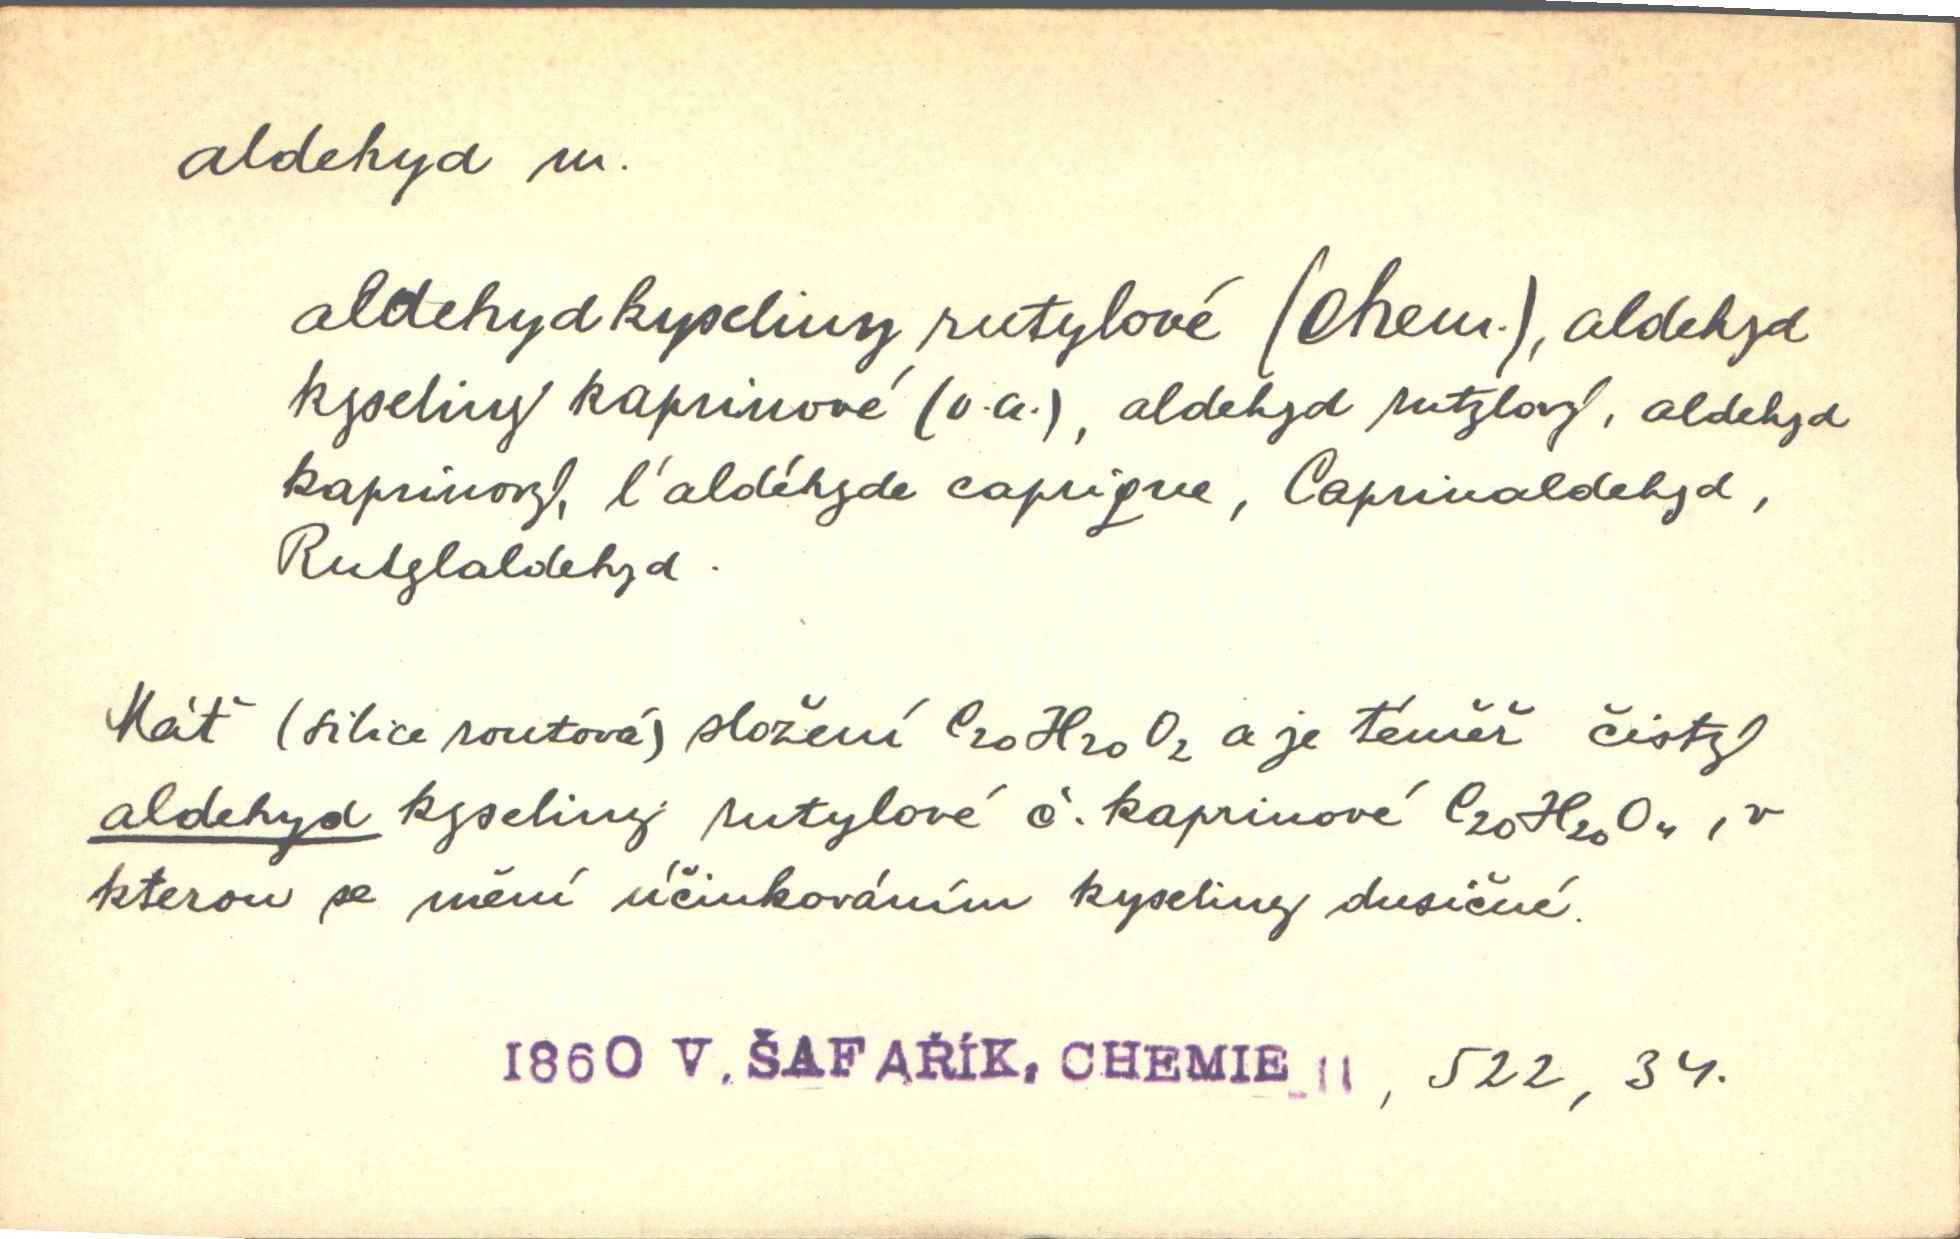 aldehyd m.
aldehyd kyseliny rutylové (Chem.), aldehyd
kyseliny kaprinové (v. a.), aldehyd rutylový, aldehyd
kaprinový, l'aldéhyde caprique, Caprinaldehyd,
Rutylaldehyd.
Máť (silice routová) složení C₂₀H₂₀O₂ a je téměř čistý
aldehyd kyseliny rutylové č. kaprinové C₂₀H₂₀O₄, v
kterou se mění účinkováním kyseliny dusičné.
1860 V. ŠAFAŘÍK, CHEMIE II, 522, 34.